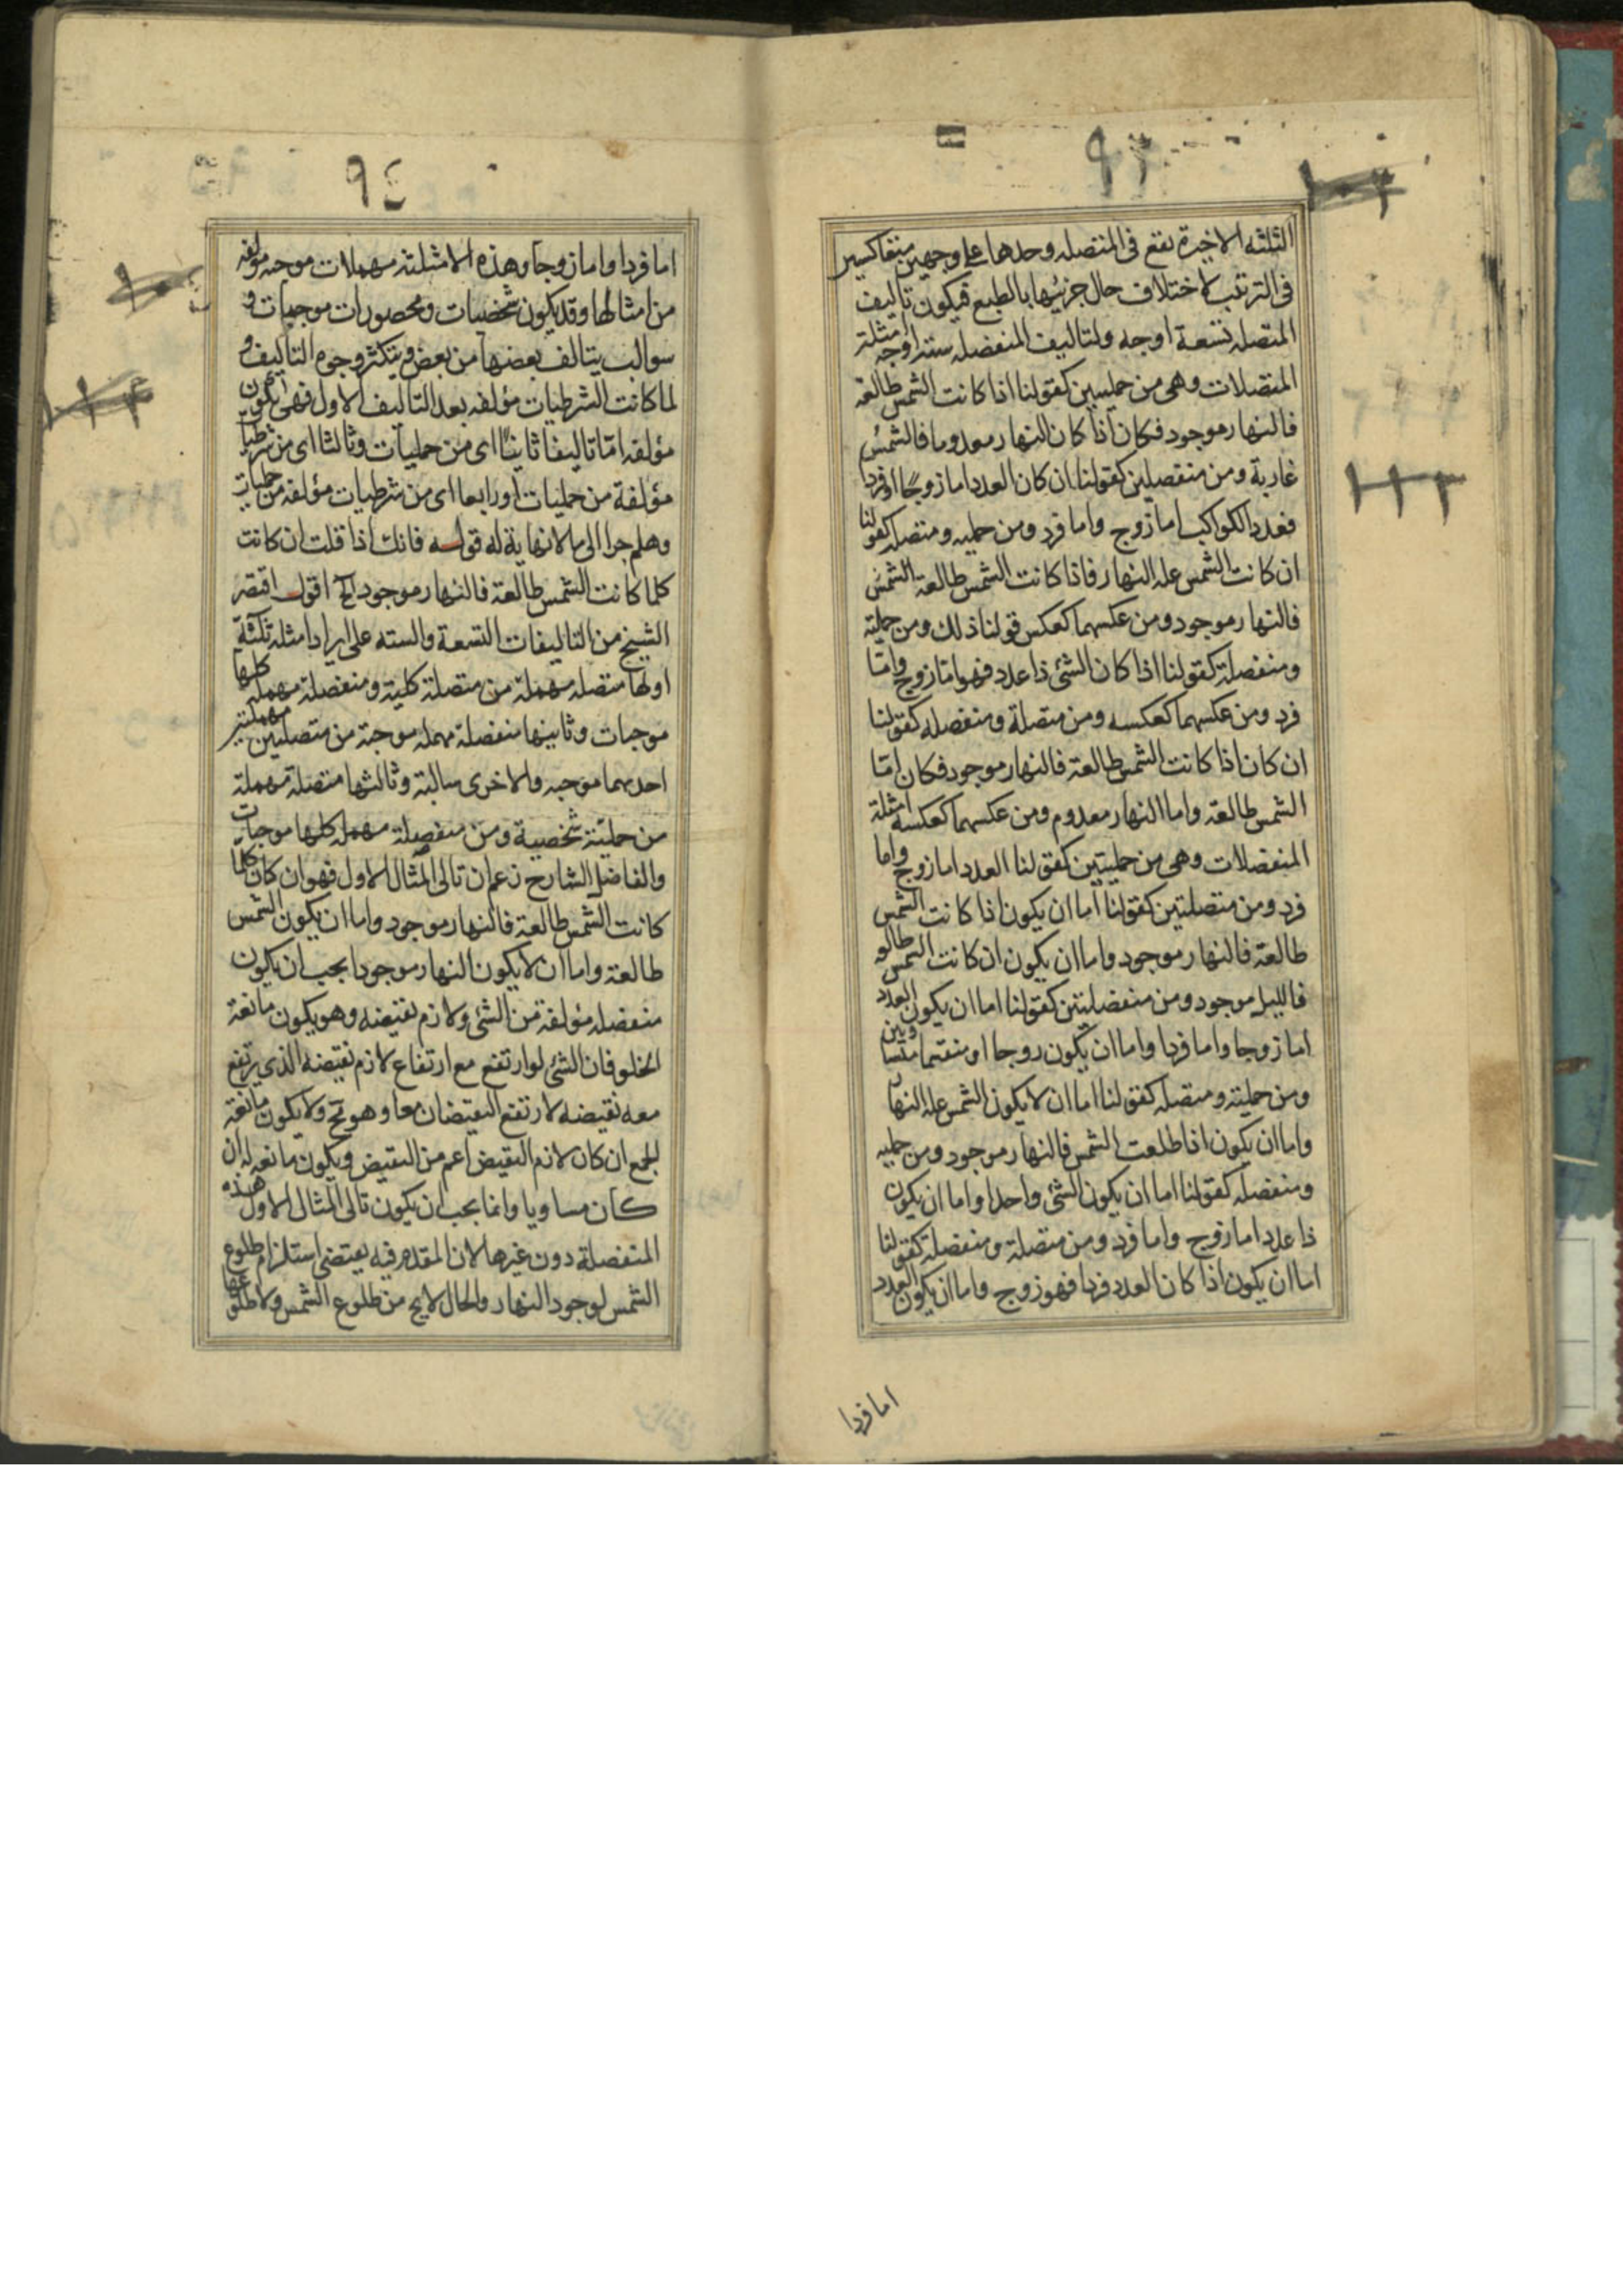 ٩٣
الثلثه الاخيرة تقع فى المتصله وحدها على وجهين متعاكسين
فى الترتيب لاختلاف حال جزئيها بالطبع فيكون تاليف
المتصله تسعة اوجه ولتاليف المنفصله ستة اوجه امثلة
المتصلات وهى من حمليتين كقولنا اذا كانت الشمس طالعة
فالنهار موجود فكان اذا كان النهار معدوما فالشمس
غاربة ومن منفصلين كقولنا ان كان العدد اما زوجا او فردا
فعدد الكواكب اما زوج واما فرد ومن حمليه ومتصله كقولنا
ان كانت الشمس عله النهار فاذا كانت الشمس طالعة الشمس
فالنهار موجود ومن عكسهما كعكس قولنا ذلك ومن حملية
ومنفصلة كقولنا اذا كان الشئ ذا عدد فهو اما زوج واما
فرد ومن عكسهما كعكسه ومن متصلة ومنفصله كقولنا
ان كان اذا كانت الشمس طالعة فالنهار موجود فكان اما
الشمس طالعة واما النهار معدوم ومن عكسهما كعكسه امثلة
المنفصلات وهى من حمليتين كقولنا العدد اما زوج واما
فرد ومن متصلتين كقولنا اما ان يكون اذا كانت الشمس
طالعة فالنهار موجود واما ان يكون ان كانت الشمس طالعه
فالليل موجود ومن منفصلتين كقولنا اما ان يكون العدد
اما زوجا واما فردا واما ان يكون زوجا او منقسما بمتساويين
ومن حملية ومتصله كقولنا اما ان لا يكون الشمس عله النهار
واما ان يكون اذا طلعت الشمس فالنهار موجود ومن حمليه
ومنفصله كقولنا اما ان يكون الشئ واحدا واما ان يكون
ذا عدد اما زوج واما فرد ومن متصلة ومنفصلة كقولنا
اما ان يكون اذا كان العدد فردا فهو زوج واما ان يكون العدد
اما فردا
٩٤
اما فردا واما زوجا وهذه الامثلة مهملات موجبه مؤلفه
من امثالها وقد يكون شخصيات ومحصورات موجبات و
سوالب يتالف بعضها من بعض ويتكثر وجوه التاليف و
لما كانت الشرطيات مؤلفه بعد التاليف الاول فهى يكون
مؤلفه اما تاليفا ثانيا اى من حمليات وثالثا اى من شرطيات
مؤلفة من حمليات او رابعا اى من شرطيات مؤلفه من حمليات
وهلم جرا الى ما لا نهاية له قوله فانك اذا قلت ان كانت
كلما كانت الشمس طالعة فالنهار موجود الخ اقول اقتصر
الشيخ من التاليفات التسعة والسته على ايراد امثله ثلثة
اولها متصله مهملة من متصلة كلية ومنفصلة مهملة كلها
موجبات وثانيها منفصلة مهمله موجبة من متصلتين مهملتين
احدىهما موجبه والاخرى سالبة وثالثها متصلة مهملة
من حملية شخصية ومن منفصلة مهمله كلها موجبات
والفاضل الشارح زعم ان تالى المثال الاول فهو ان كان كلما
كانت الشمس طالعة فالنهار موجود واما ان يكون الشمس
طالعة واما ان لا يكون النهار موجودا يجب ان يكون
منفصله مؤلفة من الشئ ولازم نقيضه وهو يكون مانعة
الخلو فان الشئ لو ارتفع مع ارتفاع لازم نقيضه الذى يرتفع
معه نقيضه لارتفع النقيضان معا وهو مح ولا يكون مانعة
الجمع ان كان لازم النقيض اعم من النقيض ويكون مانعه له ان
كان مساويا وانما يجب ان يكون تالى المثال الاول هذه
المنفصلة دون غيرها لان المقدم فيه يقتضى استلزام طلوع
الشمس لوجود النهار والحال لا يخ من طلوع الشمس ولا طلوعها